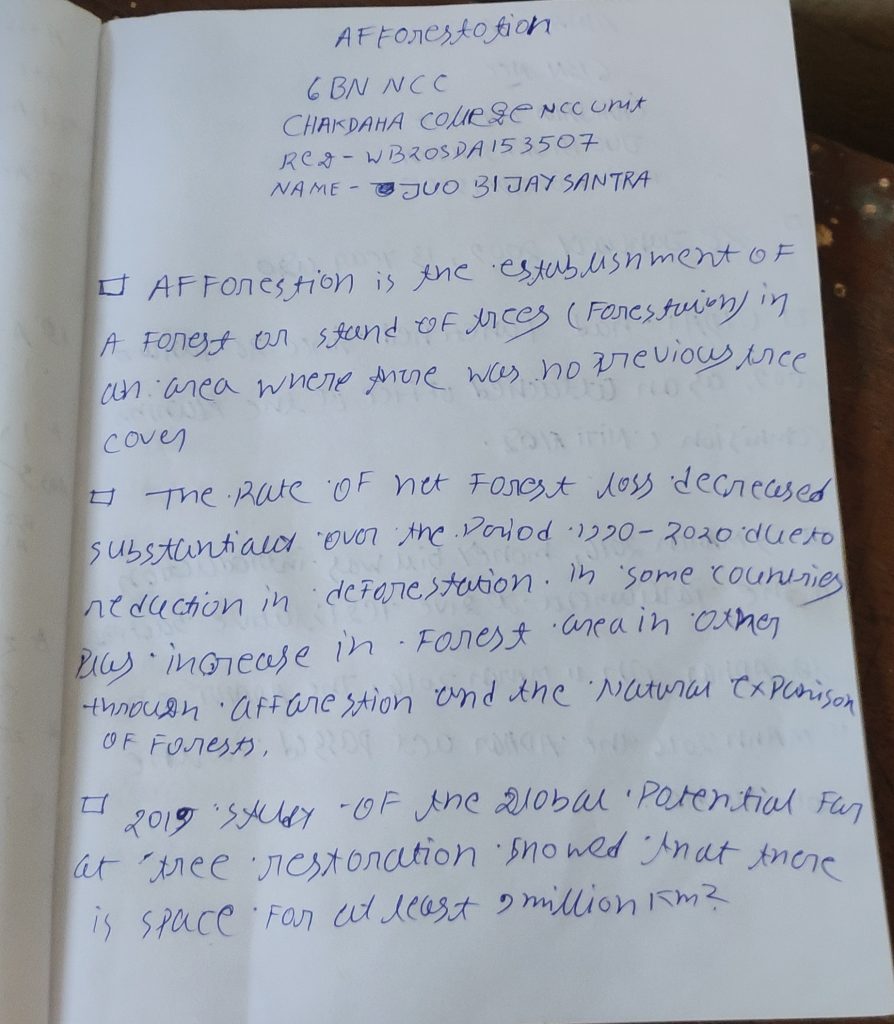 AFForestotion
6 BN NCC
CHAKDAHA COLLEGE NCC unit
REG - WB20SDA153507
NAME - JUO BIJAY SANTRA
AFForestion is the establishment OF
A Forest or stand OF trees (Forestation) in
an area where there was no previous tree
cover
The Rate OF net Forest loss decreased
substantially over the Period 1990-2020 due to
reduction in deforestation in some countries
Plus increase in Forest area in other
through afforestion and the Natural expanison
OF Forests,
2019 study OF the global Potential For
at tree restoration showed that there
is space For at least 9 million Km2